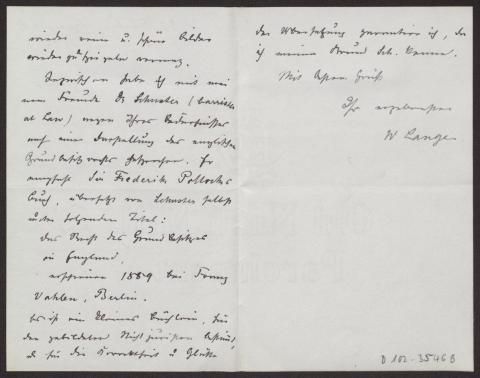 wieder reine u. schöne Bilder
wieder zu geben vermag.
Inzwischen habe ich mit mei
nem Freunde Dr Schuster (barrister
at Law) wegen Ihres Bedürfnisses
nach einer Darstellung des englischen
Grundbesitzrechts gesprochen. Er
empfahl Sir Frederik Pollocks
Buch, übersetzt von Schuster selbst
unter folgendem Titel:
das Recht des Grundbesitzes
in England,
erschienen 1889 bei Franz
Vahlen, Berlin.
Es ist ein kleines Büchlein, für
den gebildeten Nichtjuristen bestimmt,
u. für die Korrektheit u Glätte
der Übersetzung garantire ich, da
ich meinen Freund Sch. kenne.
Mit bestem Gruß
Ihr ergebenster
W Lange
D 102-3546 B